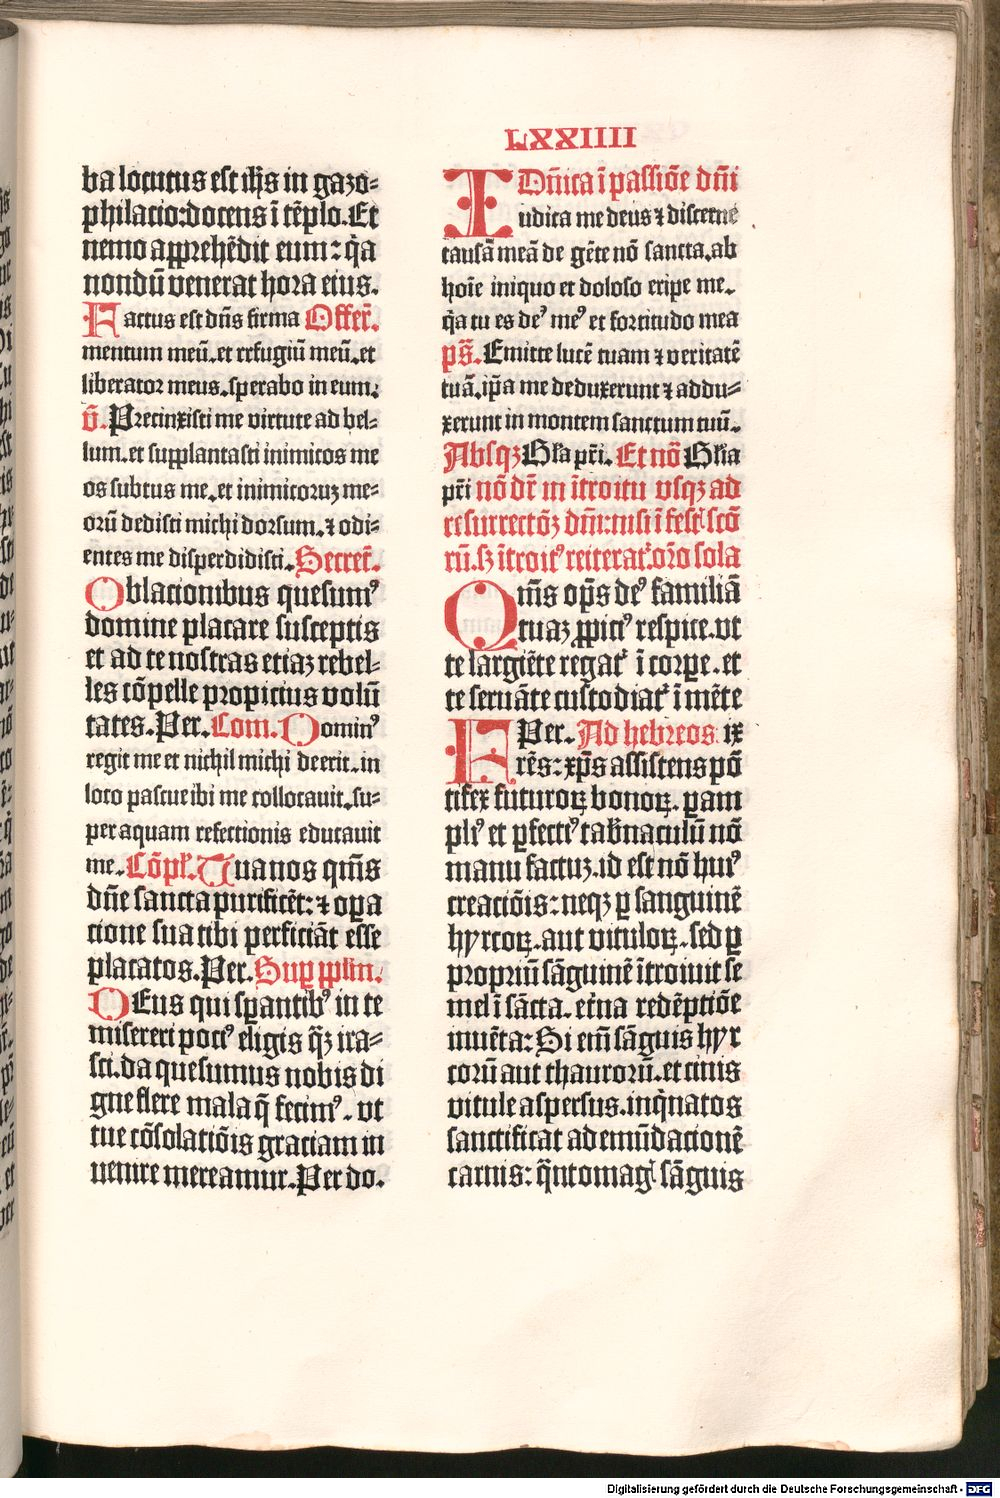 LXXIIII
ba locutus est ih̄s in gazo⸗
philacio:docens ī tēplo.Et
nemo apprehēdit eum: q̄a
nondū venerat hora eius.
Factus est dn̄s firma Offer̄.
mentum meū.et refugiū meū.et
liberator meus.sperabo in eum.
v̄. Precinxisti me virtute ad bel⸗
lum.et supplantasti inimicos me
os subtus me.et inimicoruʒ me⸗
orū dedisti michi dorsum.⁊ odi⸗
entes me disperdidisti. Secret̄.
Oblacionibus quesumꝰ
domine placare susceptis
et ad te nostras etiaʒ rebel⸗
les cōpelle propicius volū
tates. Per. Com. Dominꝰ
regit me et nichil michi deerit.in
loco pascue ibi me collocauit.su⸗
per aquam refectionis educauit
me. Cōpl̄. Tua nos qm̄s
dn̄e sancta purificēt: ⁊ oꝑa
cione sua tibi perficiāt esse
placatos. Per. Suꝑ pplm̄.
DEus qui sꝑantibꝰ in te
misereri pocꝰ eligis q̄ʒ ira⸗
sci.da quesumus nobis di
gne flere mala q̄ fecimꝰ. vt
tue cōsolatiōis graciam in
uenire mereamur. Per do.
Dn̄ica ī passiōe dn̄i
Iudica me deus ⁊ discerne
causā meā de gēte nō sancta.ab
hoīe iniquo et doloso eripe me.
q̄a tu es deꝰ meꝰ et fortitudo mea
ps̄. Emitte lucē tuam ⁊ veritatē
tuā.ip̄a me deduxerunt ⁊ addu⸗
xerunt in montem sanctum tuū.
Absqʒ Gl̄a pr̄i. Et nō Gl̄ia
pr̄i nō dr̄ in ītroitu vsqʒ ad
resurrectōʒ dn̄i:nisi ī fest̄ scō
rū.sʒ ītroitꝰ reiterat᷑.or̄o sola
Qm̄s op̄s deꝰ familiā
tuaʒ ꝓpiciꝰ respice.vt
te largiēte regat᷑ ī corꝑe.et
te seruāte custodiat᷑ ī mēte
Per. Ad hebreos ix
Frēs: xp̄s assistens pō
tifex futuroꝝ bonoꝝ. ꝑ am
pliꝰ et ꝑfectiꝰ tab̄naculū nō
manu factuʒ.id est nō huiꝰ
creaciōis: neqʒ ꝑ sanguinē
hyrcoꝝ.aut vituloꝝ.sed ꝑ
propriū sāguinē ītroiuit se
mel ī sācta.et̄na redēptiōe
inuēta: Si em̄ sāguis hyr
corū aut thaurorū.et cinis
vitule aspersus.inq̄natos
sanctificat ad emūdacionē
carnis: q̄ntomagꝭ sāguis
Digitalisierung gefördert durch die Deutsche Forschungsgemeinschaft - DFG